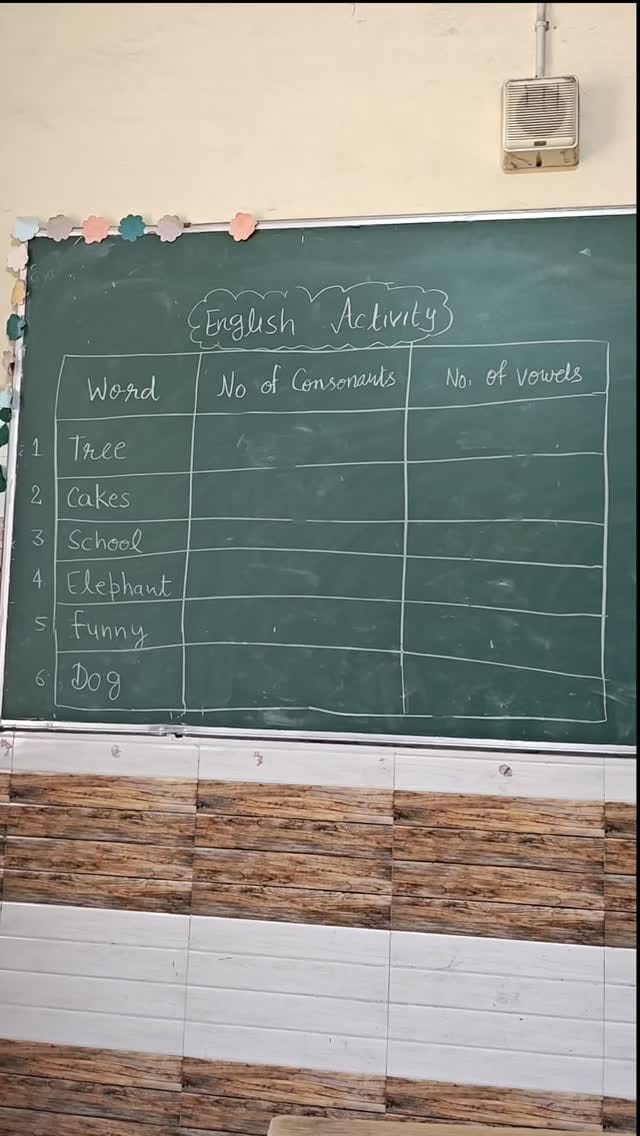 English Activity
Word No of Consonants No. of vowels
1 Tree
2 Cakes
3 School
4 Elephant
5 funny
6 Dog